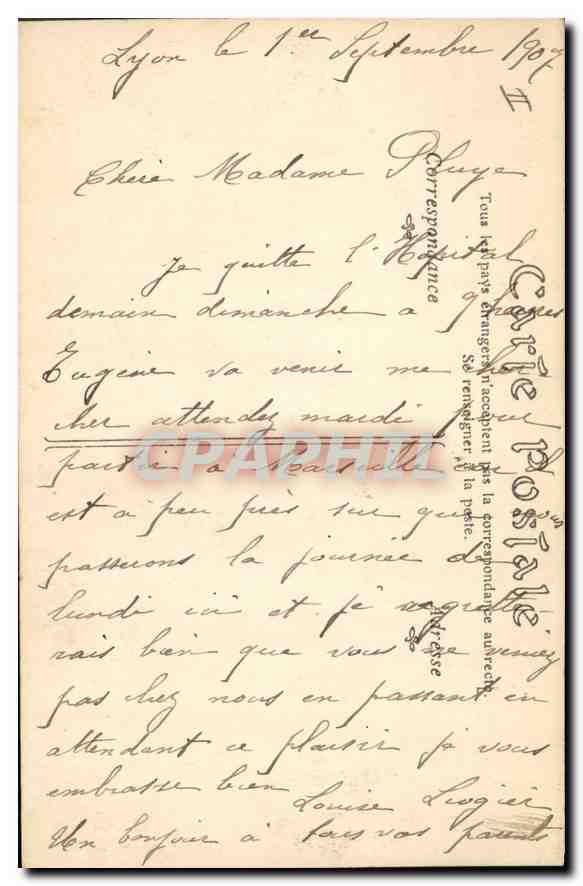 Lyon le 1er Septembre 1907
II
Chère Madame Pluye
Je quitte l'Hopital
demain dimanche a 9 heures
Eugène va venir me cher
cher attendez mardi pour
partir a Marseille on
est a peu près sur que nous
passerons la journée de
lundi ici et je regrette
rais bien que vous ne veniez
pas chez nous en passant en
attendant ce plaisir je vous
embrasse bien
Louise Liogier
Un bonjour à tous vos parents
Carte Postale
Tous les pays étrangers n'acceptent pas la correspondance au recto.
Se renseigner à la poste.
Correspondance
Adresse
CPAPHIL